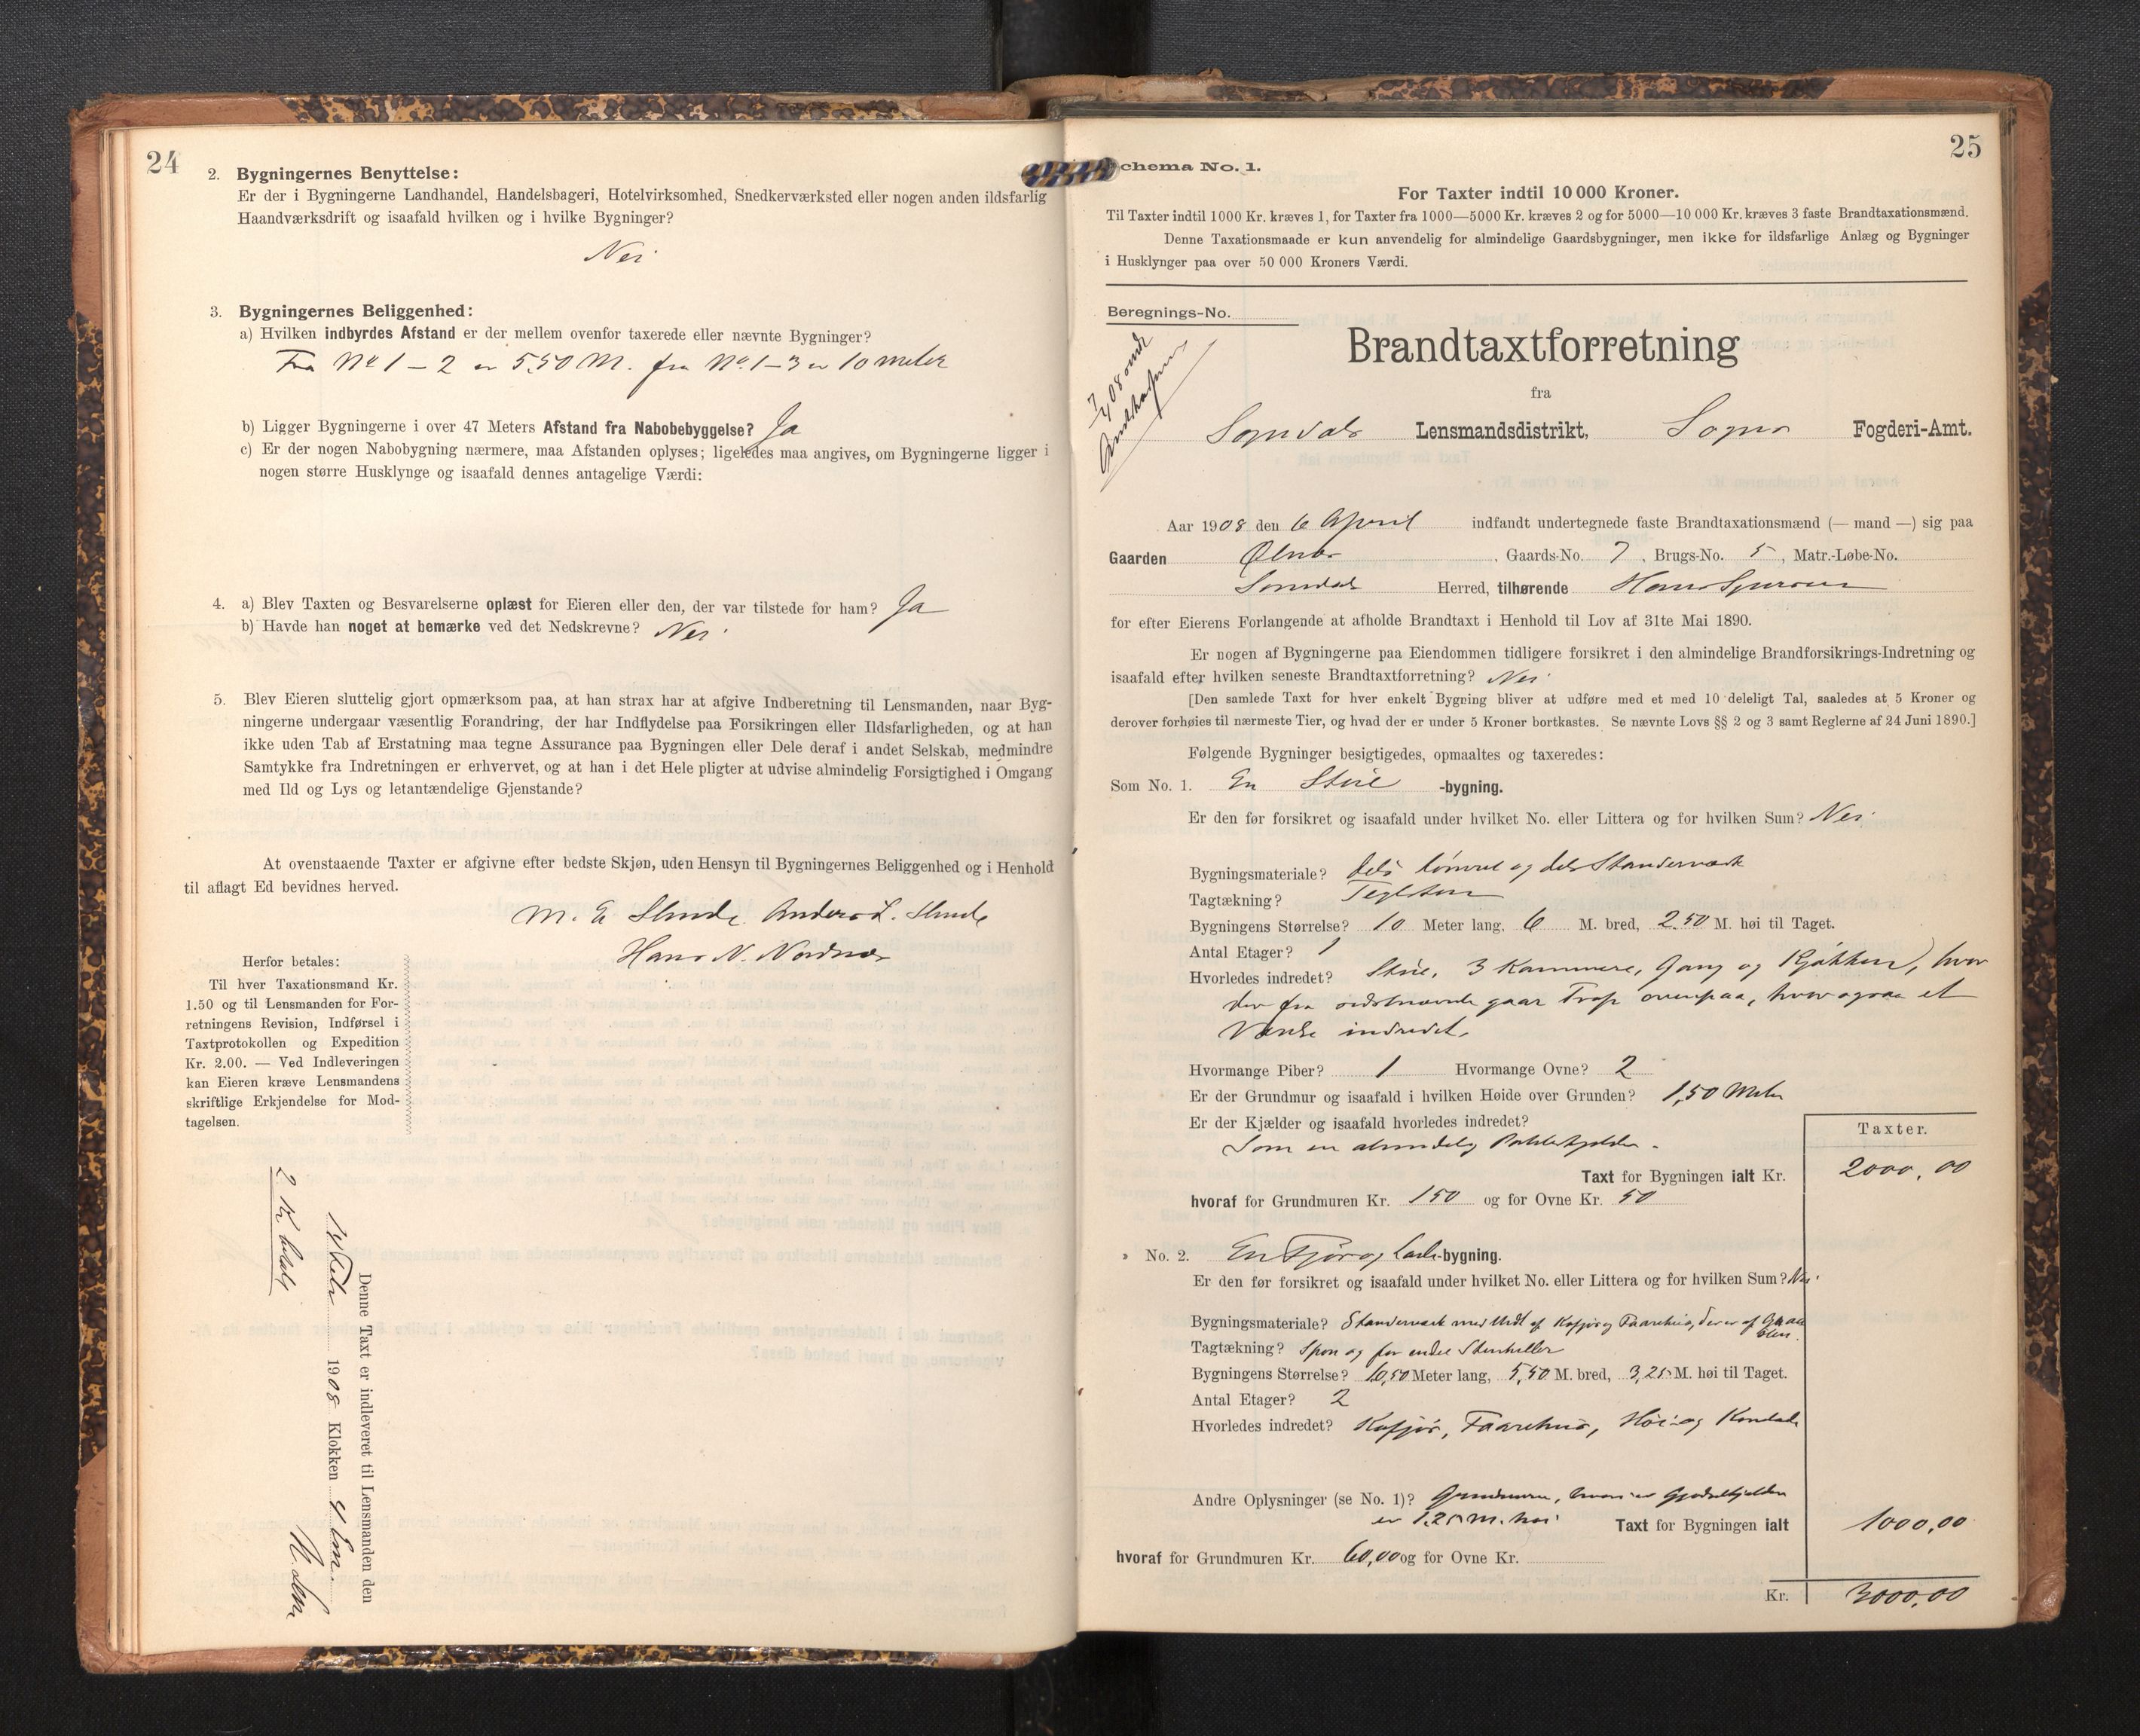 24
2. Bygningernes Benyttelse:
Er der i Bygningerne Landhandel, Handelsbageri, Hotelvirksomhed, Snedkerværksted eller nogen anden ildsfarlig
Haandværksdrift og isaafald hvilken og i hvilke Bygninger?
Nei
3. Bygningernes Beliggenhed:
a) Hvilken indbyrdes Afstand er der mellem ovenfor taxerede eller nævnte Bygninger?
Fra No 1 - 2 er 5.50 M. fra No. 1-3 er 10 meter
b) Ligger Bygningerne i over 47 Meters Afstand fra Nabobebyggelse? Ja
c) Er der nogen Nabobygning nærmere, maa Afstanden oplyses; ligeledes maa angives, om Bygningerne ligger i
nogen større Husklynge og isaafald dennes antagelige Værdi:
4. a) Blev Taxten og Besvarelserne oplæst for Eieren eller den, der var tilstede for ham? Ja
b) Havde han noget at bemærke ved det Nedskrevne? Nei
5. Blev Eieren sluttelig gjort opmærksom paa, at han strax har at afgive Indberetning til Lensmanden, naar Byg-
ningerne undergaar væsentlig Forandring, der har Indflydelse paa Forsikringen eller Ildsfarligheden, og at han
ikke uden Tab af Erstatning maa tegne Assurance paa Bygningen eller Dele deraf i andet Selskab, medmindre
Samtykke fra Indretningen er erhvervet, og at han i det Hele pligter at udvise almindelig Forsigtighed i Omgang
med Ild og Lys og letantændelige Gjenstande?
At ovenstaaende Taxter er afgivne efter bedste Skjøn, uden Hensyn til Bygningernes Beliggenhed og i Henhold
til aflagt Ed bevidnes herved.
M. E. Slinde Anders L. Slinde
Hans N. Nordnes
Herfor betales:
Til hver Taxationsmand Kr.
1.50 og til Lensmanden for For-
retningens Revision, Indførsel i
Taxtprotokollen og Expedition
Kr. 2.00. — Ved Indleveringen
kan Eieren kræve Lensmandens
skriftlige Erkjendelse for Mod-
tagelsen.
2 Kr betalt
Denne Taxt er indleveret til Lensmanden den
1908 Klokken 4 Em.
25
Schema No. 1.
For Taxter indtil 10 000 Kroner.
Til Taxter indtil 1000 Kr. kræves 1, for Taxter fra 1000—5000 Kr. kræves 2 og for 5000—10 000 Kr. kræves 3 faste Brandtaxationsmænd.
Denne Taxationsmaade er kun anvendelig for almindelige Gaardsbygninger, men ikke for ildsfarlige Anlæg og Bygninger
i Husklynger paa over 50 000 Kroners Værdi.
Beregnings-No.
Brandtaxtforretning
fra
Sogndals Lensmandsdistrikt, Sogns Fogderi-Amt.
Aar 1908 den 6 April indfandt undertegnede faste Brandtaxationsmænd (— mand —) sig paa
Gaarden Ølnes, Gaards-No. 7, Brugs-No. 5, Matr.-Løbe-No.
Sogndal Herred, tilhørende Hans
for efter Eierens Forlangende at afholde Brandtaxt i Henhold til Lov af 31te Mai 1890.
Er nogen af Bygningerne paa Eiendommen tidligere forsikret i den almindelige Brandforsikrings-Indretning og
isaafald efter hvilken seneste Brandtaxtforretning? Nei
[Den samlede Taxt for hver enkelt Bygning bliver at udføre med et med 10 deleligt Tal, saaledes at 5 Kroner og
derover forhøies til nærmeste Tier, og hvad der er under 5 Kroner bortkastes. Se nævnte Lovs §§ 2 og 3 samt Reglerne af 24 Juni 1890.]
Følgende Bygninger besigtigedes, opmaaltes og taxeredes:
Som No. 1. En Stue -bygning.
Er den før forsikret og isaafald under hvilket No. eller Littera og for hvilken Sum? Nei
Bygningsmateriale? dels tømret og dels Standerværk
Tagtækning? Teglsten
Bygningens Størrelse? 10 Meter lang, 6 M. bred, 2.50 M. høi til Taget.
Antal Etager? 1
Hvorledes indredet? Stue, 3 Kammere, Gang og Kjøkken, hvor
der fra sidstnævnte gaar Trap ovenpaa, hvor ogsaa et
indredet.
Hvormange Piber? 1 Hvormange Ovne? 2
Er der Grundmur og isaafald i hvilken Høide over Grunden? 1,50 Meter
Er der Kjælder og isaafald hvorledes indredet?
Som en almindelig Potetkjelder.
Taxter.
Taxt for Bygningen ialt Kr. 2000,00
hvoraf for Grundmuren Kr. 150 og for Ovne Kr. 50
No. 2. En Fjøs og Lade-bygning.
Er den før forsikret og isaafald under hvilket No. eller Littera og for hvilken Sum? Nei
Bygningsmateriale? Standerværk med Undt. af Kofjøs og Faarehus, der er af Graasten.
Tagtækning? Spon og for endel Stenheller
Bygningens Størrelse? 10,50 Meter lang, 5,50 M. bred, 3,25 M. høi til Taget.
Antal Etager? 2
Hvorledes indredet? Kofjøs, Faarehus, Høi- og Kornlade
Andre Oplysninger (se No. 1)? Grundmuren, hvori er Gjødselkjelder
er 1.25 M. høi Taxt for Bygningen ialt 1000,00
hvoraf for Grundmuren Kr. 60,00 og for Ovne Kr.
Kr. 3000,00